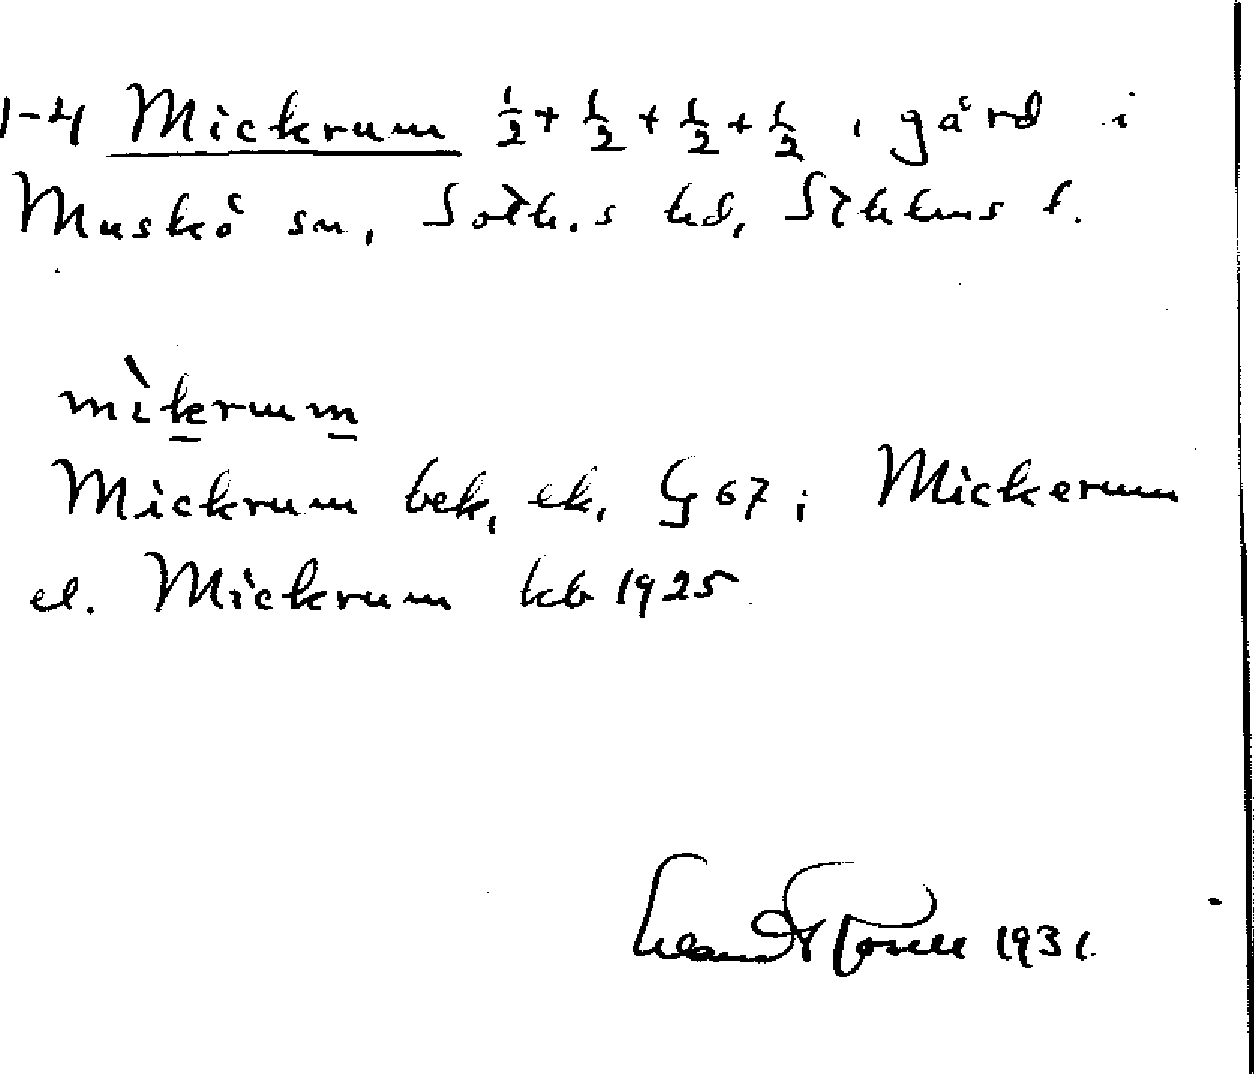 1-4 Mickrum ½ + ½ + ½ + ½, gård i
Muskö sn, Soth.s hd, Sthlms l.
mìkrum
Mickrum bek, ek, G 67; Mickerum
el. Mickrum kb 1925
1931.